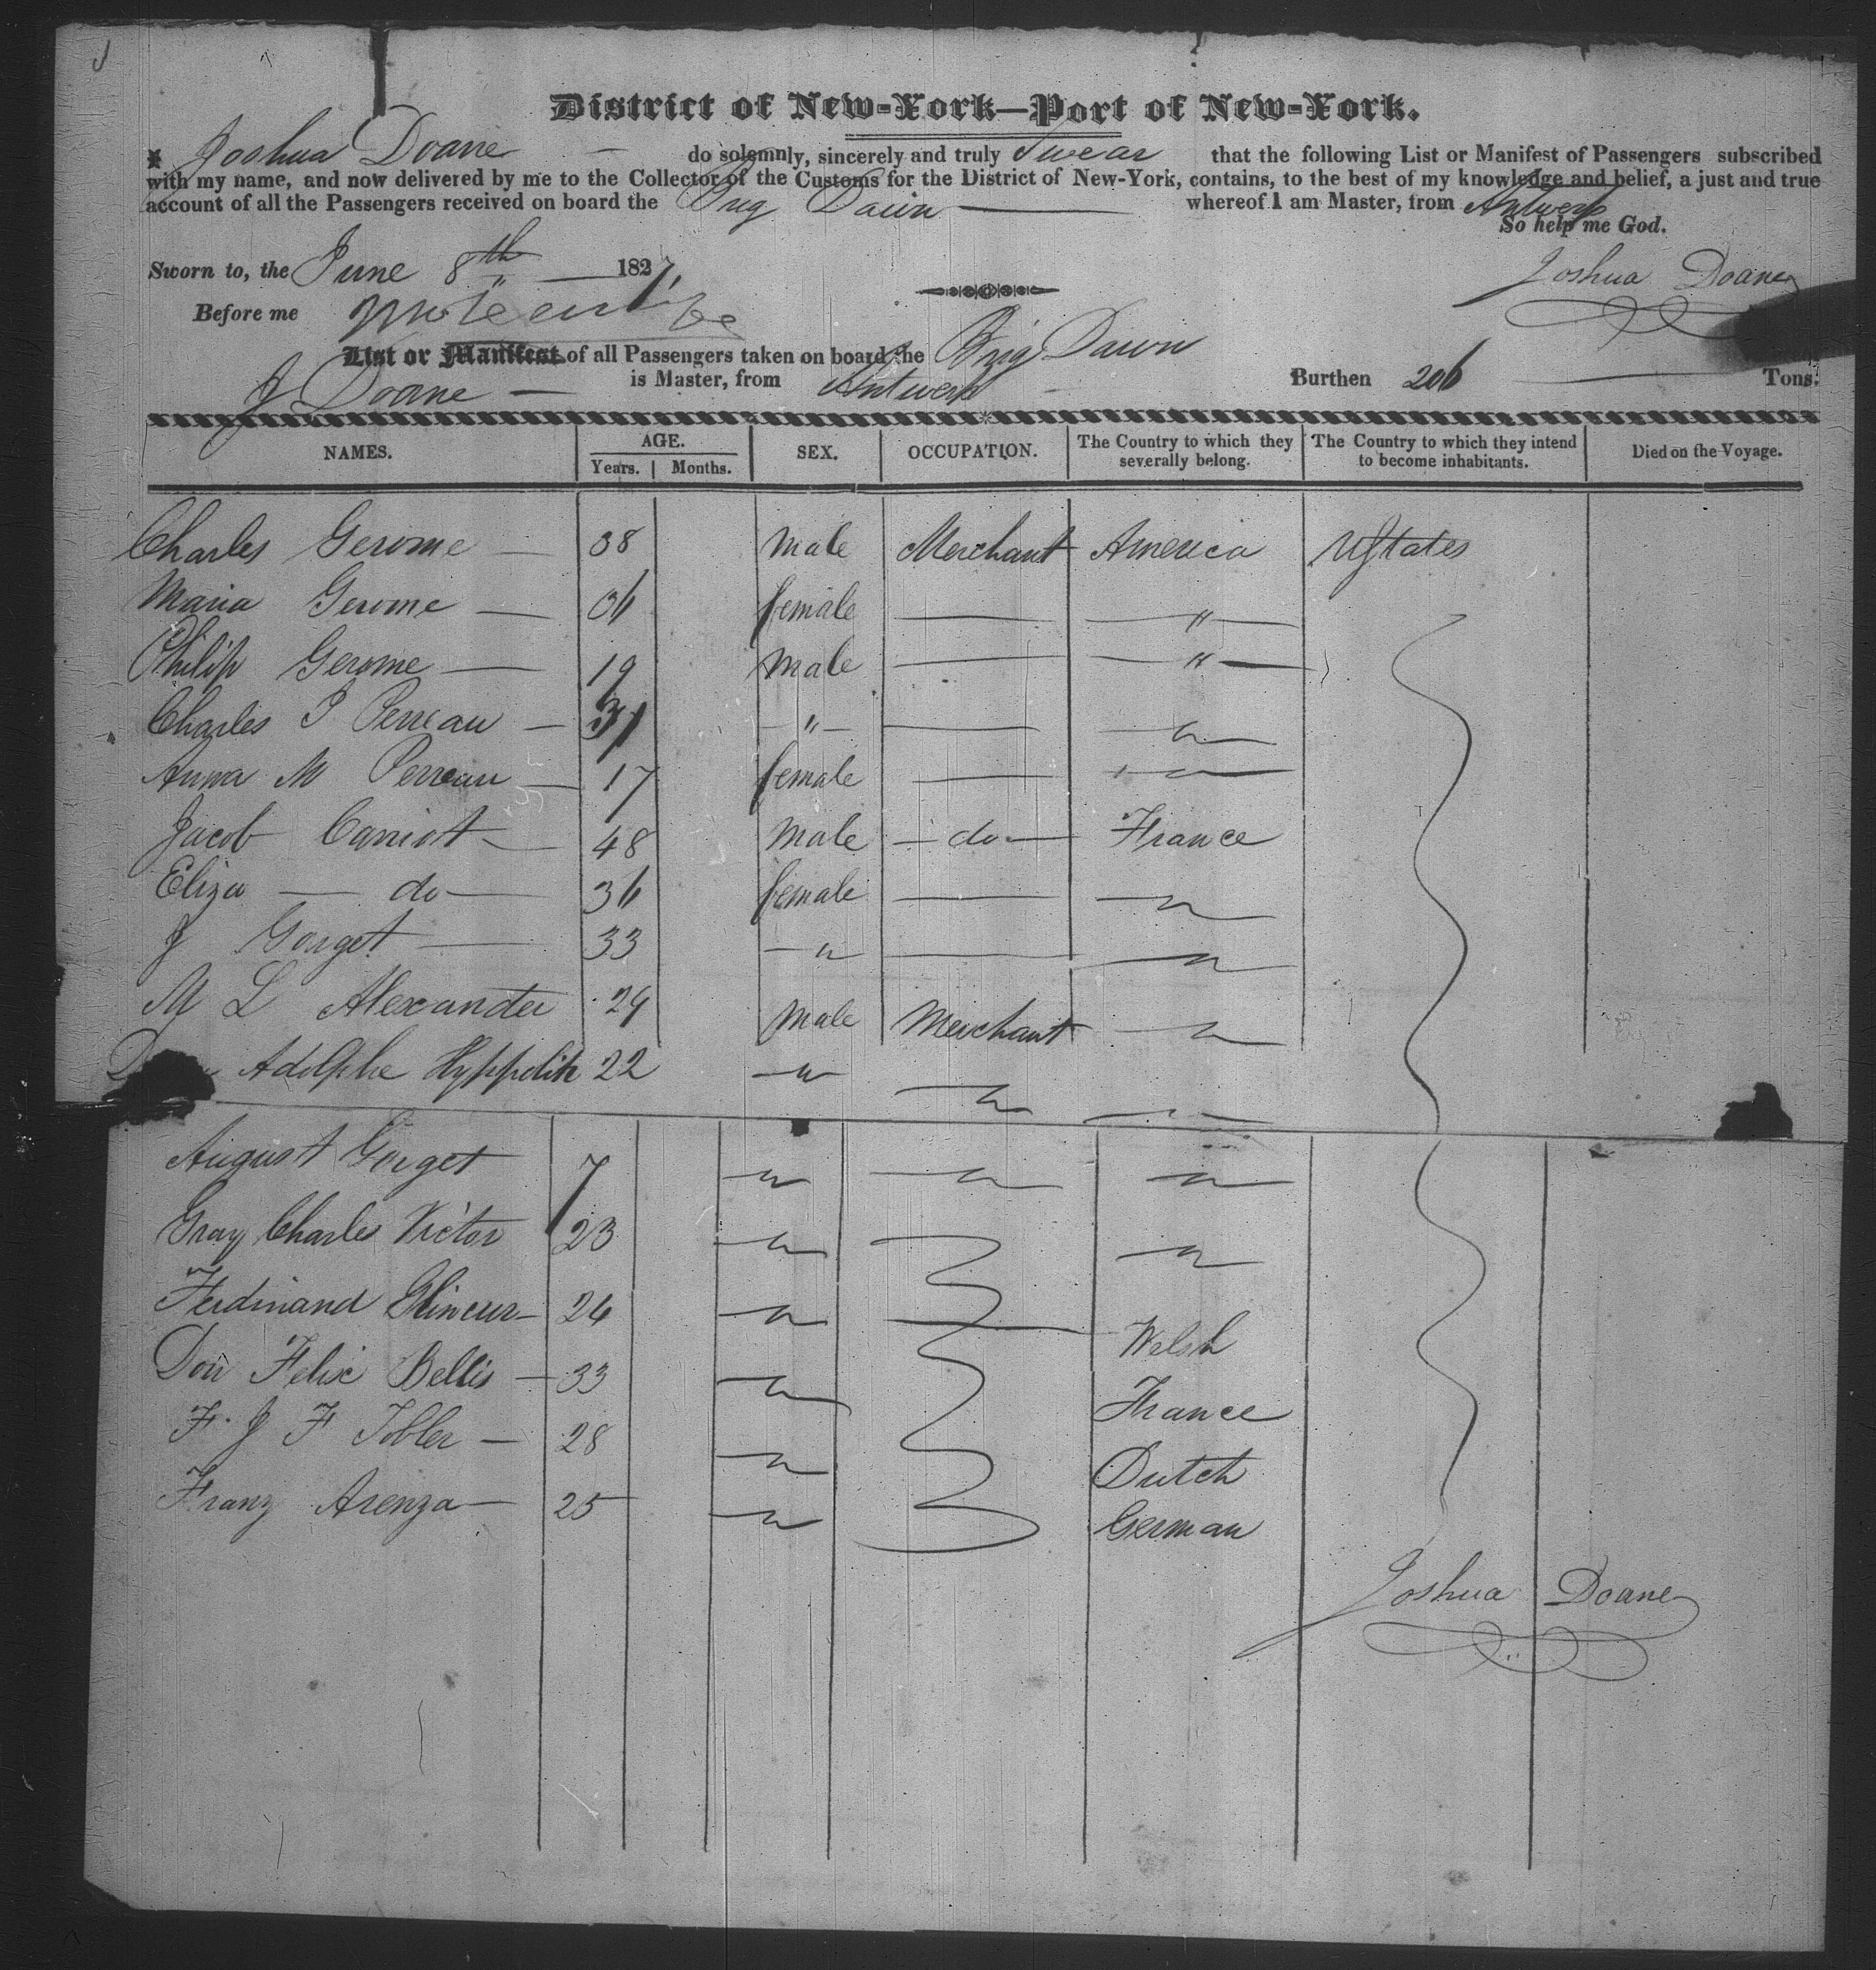 District of New-York—Port of New-York.
I Joshua Doane do solemnly, sincerely and truly Swear that the following List or Manifest of Passengers subscribed
with my name, and now delivered by me to the Collector of the Customs for the District of New-York, contains, to the best of my knowledge and belief, a just and true
account of all the Passengers received on board the Brig Dawn whereof I am Master, from Antwerp
So help me God.
Sworn to, the June 8th 1827. Joshua Doane
Before me
List or Manifest of all Passengers taken on board the Brig Dawn
J Doane is Master, from Antwerp Burthen 206 Tons.
NAMES. AGE. Years. Months. SEX. OCCUPATION. The Country to which they severally belong. The Country to which they intend to become inhabitants. Died on the Voyage.
Charles Gerome 38 Male Merchant America UStates
Maria Gerome 36 female — "
Philip Gerome 19 Male — "
Charles P Perreau 31 " — "
Anna M Perreau 17 female — "
Jacob Carriot 48 Male do France
Eliza do 36 female — "
J Gorget 33 " — "
M L Alexander 29 Male Merchant "
Adolphe Hyppolite 22 " " "
August Gorget 7 " " "
Gray Charles Victor 23 " "
Ferdinand Glineur 24 " Welsh
Don Felix Bellis 33 " France
F. J F Tobler 28 " Dutch
Franz Arenza 25 " German
Joshua Doane